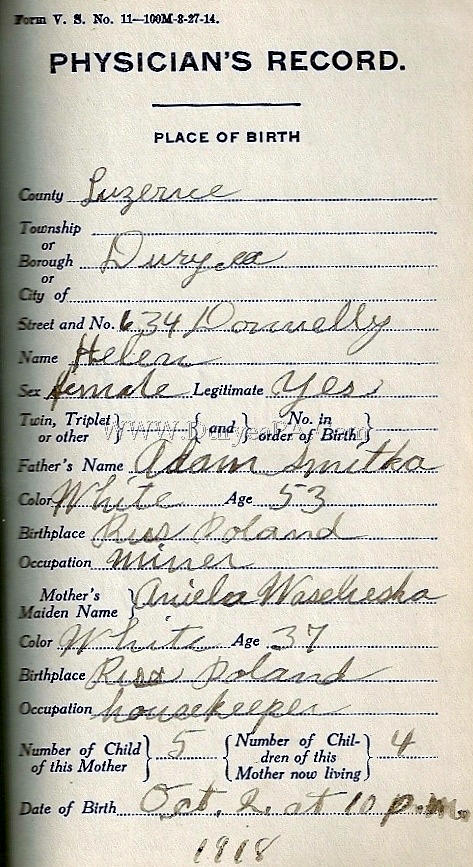 Form V. S. No. 11—100M-8-27-14.
PHYSICIAN'S RECORD.
PLACE OF BIRTH
County Luzerne
Township
or
Borough Duryea
or
City of
Street and No. 634 Donnelly
Name Helen
Sex female Legitimate Yes
Twin, Triplet or other } { and } No. in order of Birth }
www.DuryeaPA.com
Father's Name Adam Smitka
Color White Age 53
Birthplace Russ Poland
Occupation miner
Mother's Maiden Name } Aniela
Color White Age 37
Birthplace Russ Poland
Occupation housekeeper
Number of Child of this Mother } 5 { Number of Children of this Mother now living } 4
Date of Birth Oct. 2. at 10 p.m.
1918